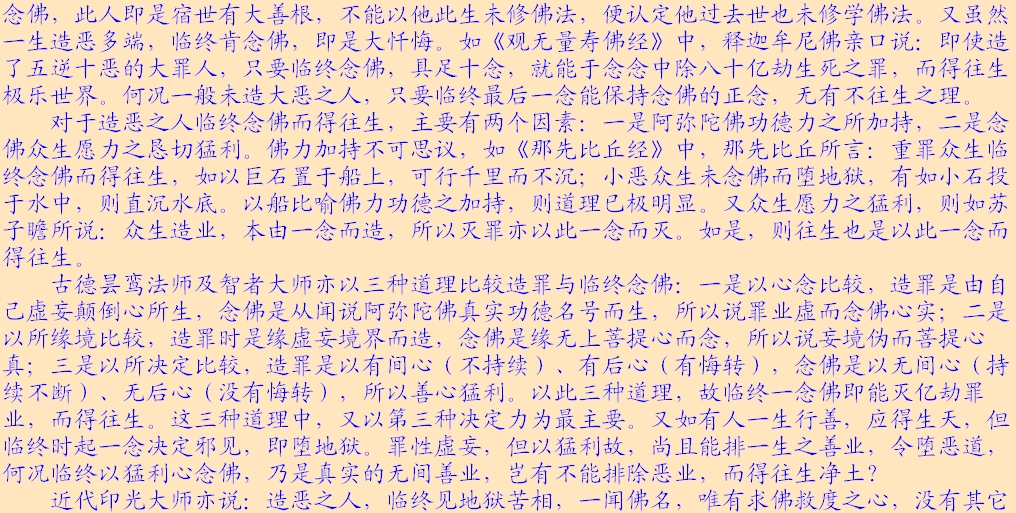 念佛，此人即是宿世有大善根，不能以他此生未修佛法，便认定他过去世也未修学佛法。又虽然
一生造恶多端，临终肯念佛，即是大忏悔。如《观无量寿佛经》中，释迦牟尼佛亲口说：即使造
了五逆十恶的大罪人，只要临终念佛，具足十念，就能于念念中除八十亿劫生死之罪，而得往生
极乐世界。何况一般未造大恶之人，只要临终最后一念能保持念佛的正念，无有不往生之理。
对于造恶之人临终念佛而得往生，主要有两个因素：一是阿弥陀佛功德力之所加持，二是念
佛众生愿力之恳切猛利。佛力加持不可思议，如《那先比丘经》中，那先比丘所言：重罪众生临
终念佛而得往生，如以巨石置于船上，可行千里而不沉；小恶众生未念佛而堕地狱，有如小石投
于水中，则直沉水底。以船比喻佛力功德之加持，则道理已极明显。又众生愿力之猛利，则如苏
子瞻所说：众生造业，本由一念而造，所以灭罪亦以此一念而灭。如是，则往生也是以此一念而
得往生。
古德昙鸾法师及智者大师亦以三种道理比较造罪与临终念佛：一是以心念比较，造罪是由自
己虚妄颠倒心所生，念佛是从闻说阿弥陀佛真实功德名号而生，所以说罪业虚而念佛心实；二是
以所缘境比较，造罪时是缘虚妄境界而造，念佛是缘无上菩提心而念，所以说妄境伪而菩提心
真；三是以所决定比较，造罪是以有间心（不持续）、有后心（有悔转），念佛是以无间心（持
续不断）、无后心（没有悔转），所以善心猛利。以此三种道理，故临终一念佛即能灭亿劫罪
业，而得往生。这三种道理中，又以第三种决定力为最主要。又如有人一生行善，应得生天，但
临终时起一念决定邪见，即堕地狱。罪性虚妄，但以猛利故，尚且能排一生之善业，令堕恶道，
何况临终以猛利心念佛，乃是真实的无间善业，岂有不能排除恶业，而得往生净土？
近代印光大师亦说：造恶之人，临终见地狱苦相，一闻佛名，唯有求佛救度之心，没有其它